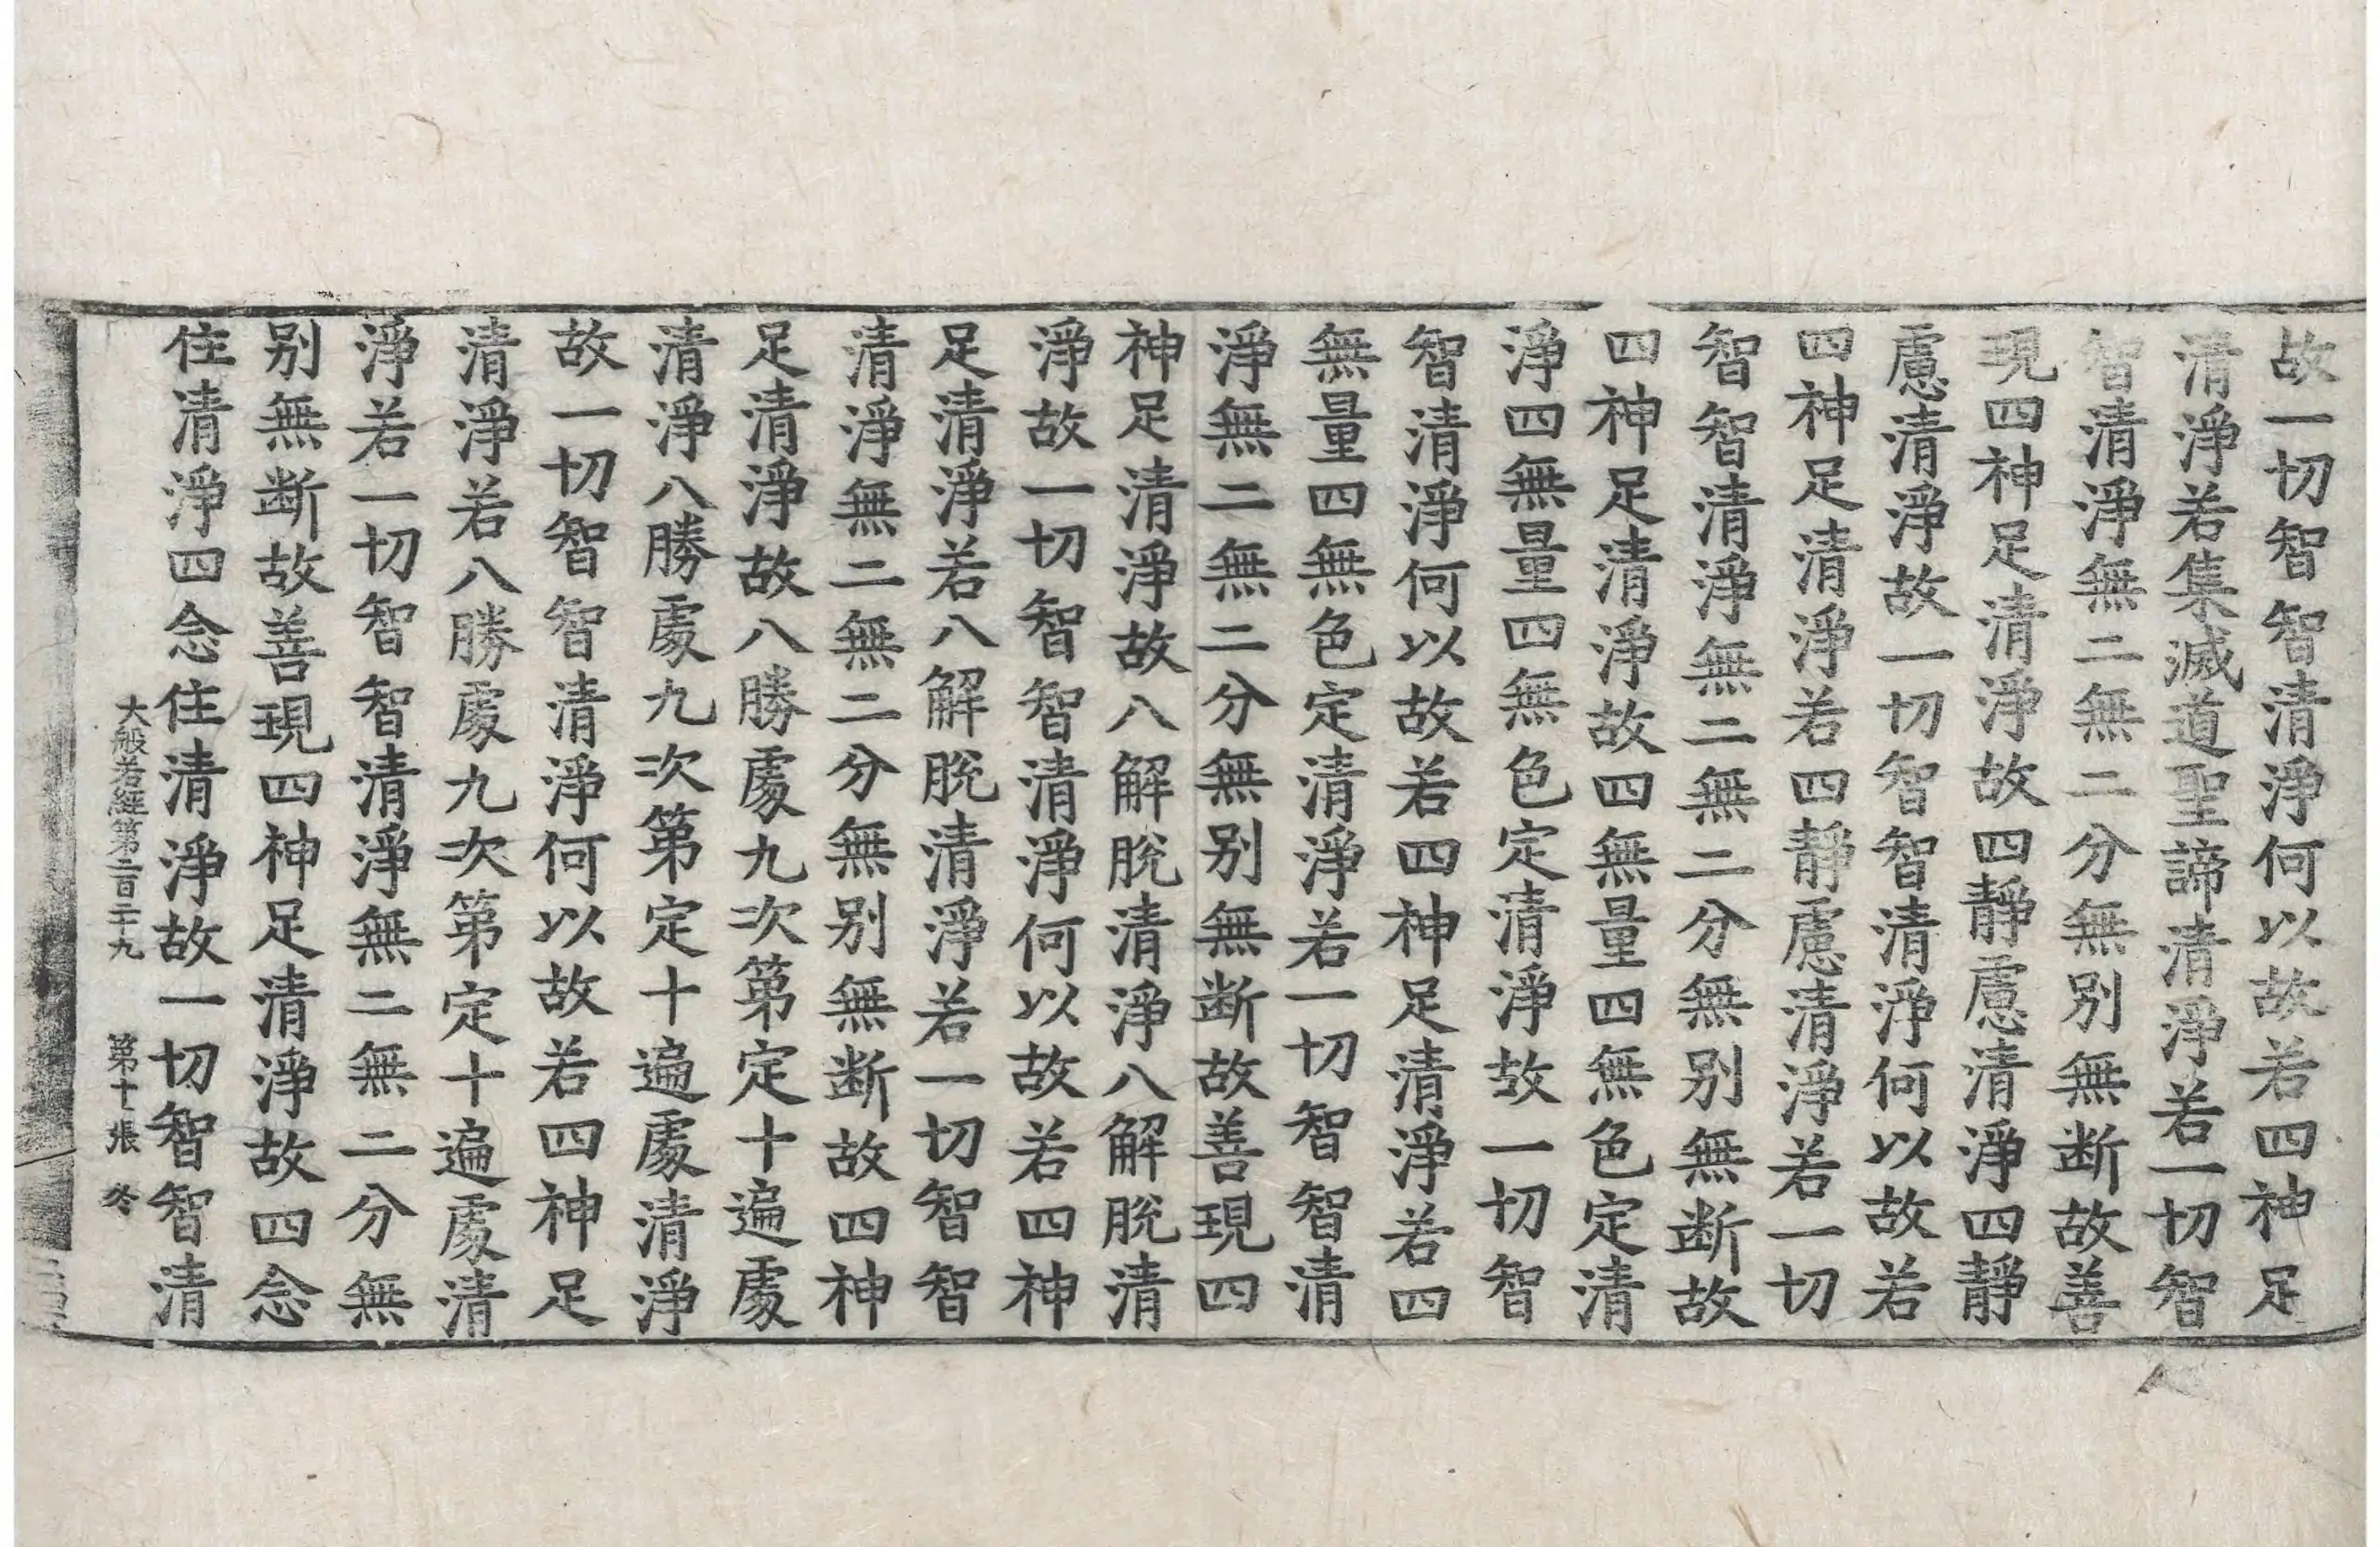 故一切智智清淨何以故若四神足
清淨若集滅道聖諦清淨若一切智
智清淨無二無二分無別無断故善
現四神足清淨故四靜慮清淨四靜
慮清淨故一切智智清淨何以故若
四神足清淨若四靜慮清淨若一切
智智清淨無二無二分無別無断故
四神足清淨故四無量四無色定清
淨四無量四無色定清淨故一切智
智清淨何以故若四神足清淨若四
無量四無色定清淨若一切智智清
淨無二無二分無別無断故善現四
神足清淨故八解脫清淨八解脫清
淨故一切智智清淨何以故若四神
足清淨若八解脫清淨若一切智智
清淨無二無二分無別無断故四神
足清淨故八勝處九次第定十遍處
清淨八勝處九次第定十遍處清淨
故一切智智清淨何以故若四神足
清淨若八勝處九次第定十遍處清
淨若一切智智清淨無二無二分無
別無断故善現四神足清淨故四念
住清淨四念住清淨故一切智智清
大般若經第二百二十九 第十張 冬